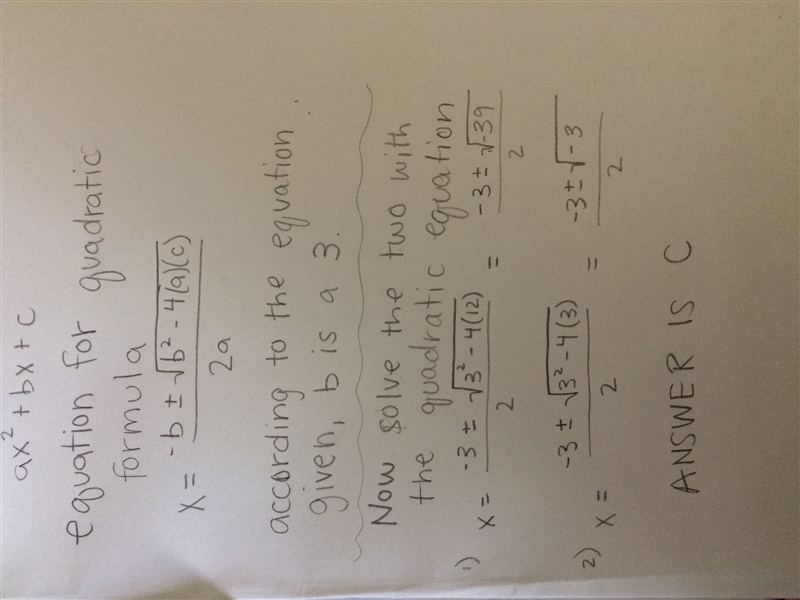 ax² + bx + c
equation for quadratic
formula
x = -b ± √b² - 4(a)(c) / 2a
according to the equation
given, b is a 3.
Now solve the two with
the quadratic equation
1) x = -3 ± √3² - 4(12) / 2 = -3 ± √-39 / 2
2) x = -3 ± √3² - 4(3) / 2 = -3 ± √-3 / 2
ANSWER IS C